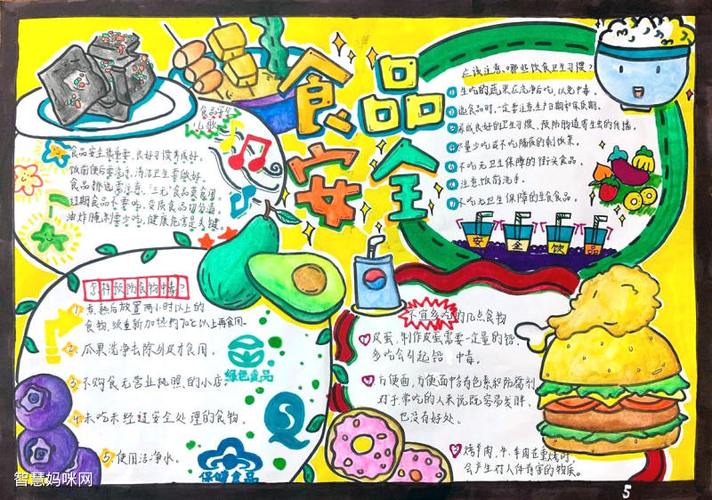 食品
安全
食品卫生
儿歌
食品安全很重要,良好习惯养成好。
饭前便后要洗手,清洁卫生要做好。
食品挑选需注意,"三无"食品莫食用。
过期食品不要吃,变质食品切勿沾。
油炸腌制要少吃,健康危害是关键。
应该注意哪些饮食卫生习惯?
生吃的蔬果应洗净后吃,以免中毒。
选食品时,一定要注意生产日期和保质期。
养成良好的卫生习惯,预防肠道寄生虫的传播。
尽量少吃或不吃隔夜的剩饭菜。
不吃无卫生保障的街头食品。
注意饭前洗手。
不吃无卫生保障的生食食品。
安 全 饮 品
怎样预防食物中毒?
1 煮熟后放置两小时以上的
食物,须重新加热到70℃以上再食用。
2 瓜果洗净去除外皮才食用。
3 不购食无营业执照的小店
4 未吃未经过安全处理的食物。
5 使用洁净水。
绿色食品
保健食品
不宜多吃的几点食物
1 皮蛋,制作皮蛋需要一定量的铅,
多吃会引起铅中毒。
2 方便面,方便面中含有色素和防腐剂
对于常吃的人来说既容易发胖,
也没有好处。
3 烤羊肉,牛、羊肉在熏烤时,
会产生对人体有害的物质。
智慧妈咪网
5